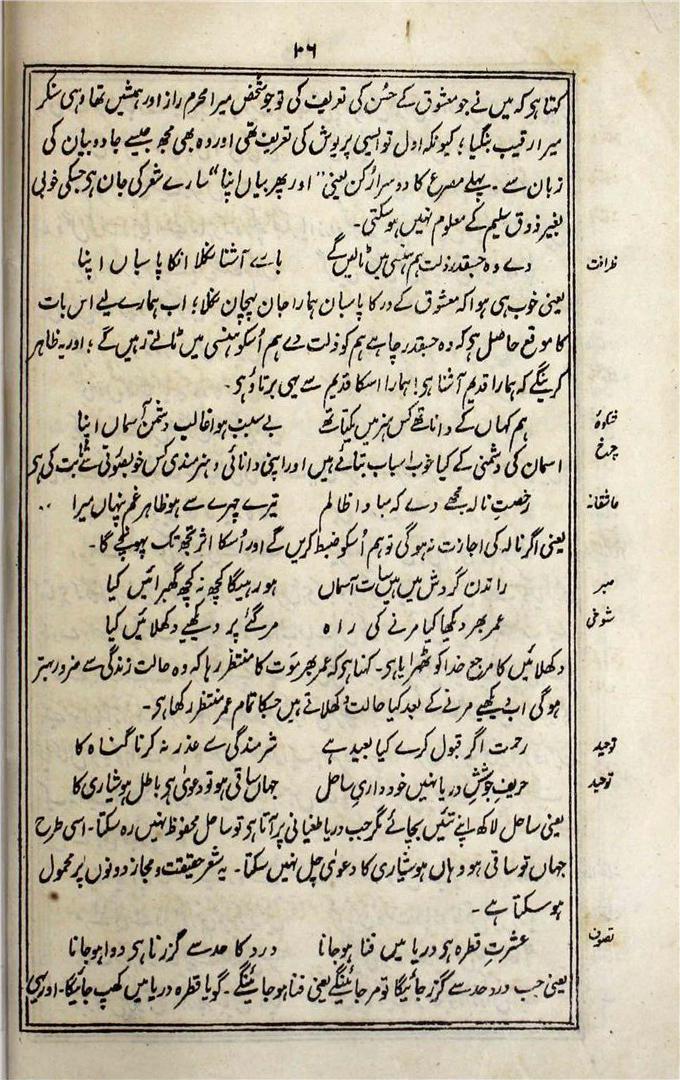 ۳۶
کہتا ہی کہ میں نے جو معشوق کے حسُن کی تعریف کی تو جو شخص میرا محرم راز اور ہمنشیں تھا وہی سنکر
میرا رقیب بنگیا ؛ کیونکہ اول تو ایسی پریوش کی تعریف تھی اور وہ بھی مجھ جیسے جادو بیان کی
زبان سے ۔ پہلے مصرع کا دوسرا رُکن یعنی ”اور پھر بیاں اپنا“ سارے شعر کی جان ہی جسکی خوبی
بغیر ذوق سلیم کے معلوم نہیں ہو سکتی۔
ظرافت
دے وہ جسقدر ذلت ہم ہنسی میں ٹالیں گے بارے آشنا نکلا انکا پاسباں اپنا
یعنی خوب ہی ہوا کہ معشوق کے در کا پاسبان ہمارا جان پہچان نکلا؛ اب ہمارے لیے اس بات
کا موقع حاصل ہی کہ وہ جسقدر چاہے ہم کو ذلت دے ہم اُسکو ہنسی میں ٹالتے رہیں گے ؛ اور یہ ظاہر
کرینگے کہ ہمارا قدیم آشنا ہی! ہمارا اسکا قدیم سے یہی برتاؤ ہی۔
شکوۂ چرخ
ہم کہاں کے دانا تھے کس ہنر میں یکتا تھے بے سبب ہوا غالب دشمن آسماں اپنا
اسمان کی دشمنی کے کیا خوب اسباب بتائے ہیں اور اپنی دانائی و ہنرمندی کس خوبصورتی سے ثابت کی ہی
عاشقانہ
رخصتِ نالہ مجھے دے کہ مبادا ظالم تیرے چہرے سے ہو ظاہر غم پنہاں میرا
یعنی اگر نالہ کی اجازت نہ ہوگی تو ہم اُسکو ضبط کریں گے اور اُسکا اثر تجھ تک پہونچے گا۔
صبر
رات دن گردش میں ہیں سات آسماں ہو رہیگا کچھ نہ کچھ گھبرائیں کیا
شوخی
عمر بھر دیکھا کیا مرنے کی راہ مرگئے پر دیکھیے دکھلائیں کیا
دکھلائیں کا مرجع خدا کو ٹھہرایا ہی۔ کہتا ہی کہ عمر بھر موت کا منتظر رہا کہ وہ حالت زندگی سے ضرور بہتر
ہوگی اب دیکھیے مرنے کے بعد کیا حالت دکھلاتے ہیں جسکا تمام عمر منتظر رکھا ہی۔
توحید
رحمت اگر قبول کرے کیا بعید ہے شرمندگی سے عذر نہ کرنا گناہ کا
توحید
حریفِ جوششِ دریا نہیں خودداریِ ساحل جہاں ساقی ہو تو دعویٰ ہی باطل ہوشیاری کا
یعنی ساحل لاکھ اپنے تئیں بچائے مگر جب دریا طغیانی پر آتا ہی تو ساحل محفوظ نہیں رہ سکتا۔ اسی طرح
جہاں تو ساقی ہو وہاں ہوشیاری کا دعویٰ چل نہیں سکتا۔ یہ شعر حقیقت و مجاز دونوں پر محمول
ہو سکتا ہے ۔
تصوف
عشرتِ قطرہ ہی دریا میں فنا ہو جانا درد کا حد سے گزرنا ہی دوا ہو جانا
یعنی جب درد حد سے گزر جائیگا تو مر جائینگے یعنی فنا ہو جائینگے ۔ گویا قطرہ دریا میں کھپ جائیگا۔ اور یہی